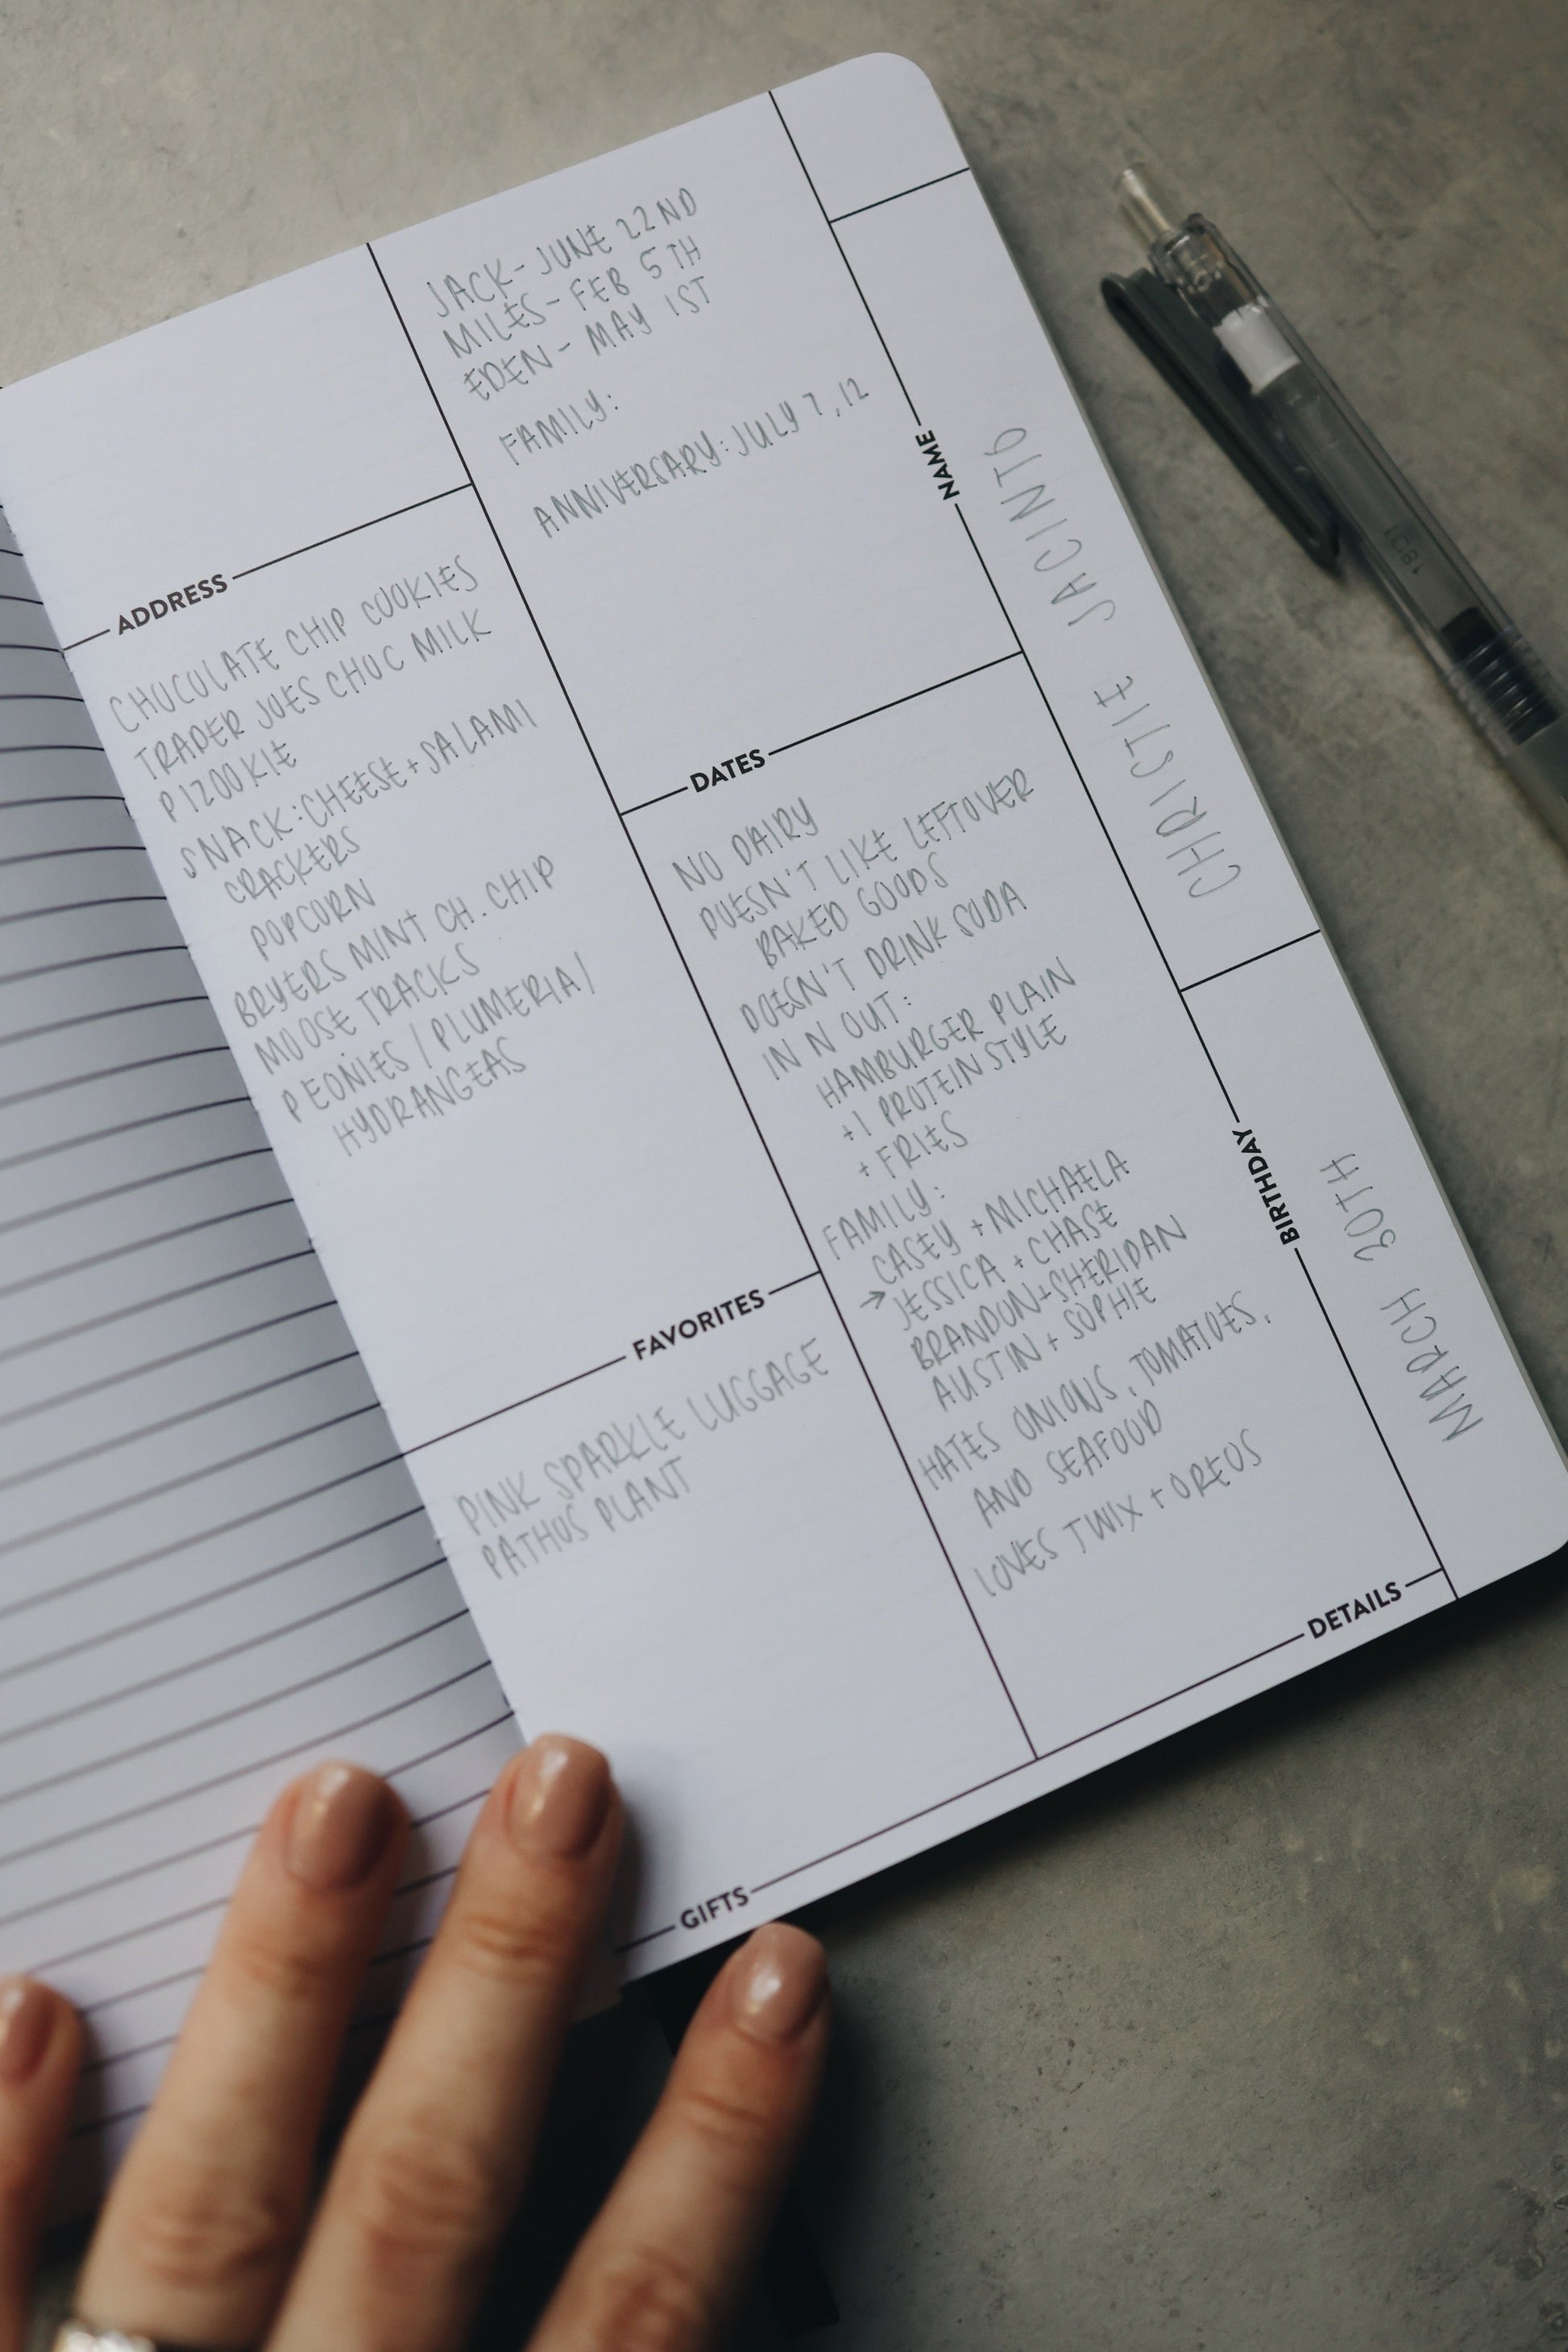 NAME
CHRISTIE JACINTO
BIRTHDAY
MARCH 30TH
JACK - JUNE 22ND
MILES - FEB 5TH
EDEN - MAY 1ST
FAMILY:
ANNIVERSARY: JULY 7, 12
DATES
ADDRESS
CHOCOLATE CHIP COOKIES
TRADER JOES CHOC MILK
PIZOOKIE
SNACK: CHEESE + SALAMI
CRACKERS
POPCORN
BRYERS MINT CH. CHIP
MOOSE TRACKS
PEONIES / PLUMERIA /
HYDRANGEAS
FAVORITES
NO DAIRY
DOESN'T LIKE LEFTOVER
BAKED GOODS
DOESN'T DRINK SODA
IN N OUT:
HAMBURGER PLAIN
+1 PROTEIN STYLE
+ FRIES
FAMILY:
CASEY + MICHAELA
→ JESSICA + CHASE
BRANDON + SHERIDAN
AUSTIN + SOPHIE
HATES ONIONS, TOMATOES,
AND SEAFOOD
LOVES TWIX + OREOS
DETAILS
PINK SPARKLE LUGGAGE
PATHOS PLANT
GIFTS